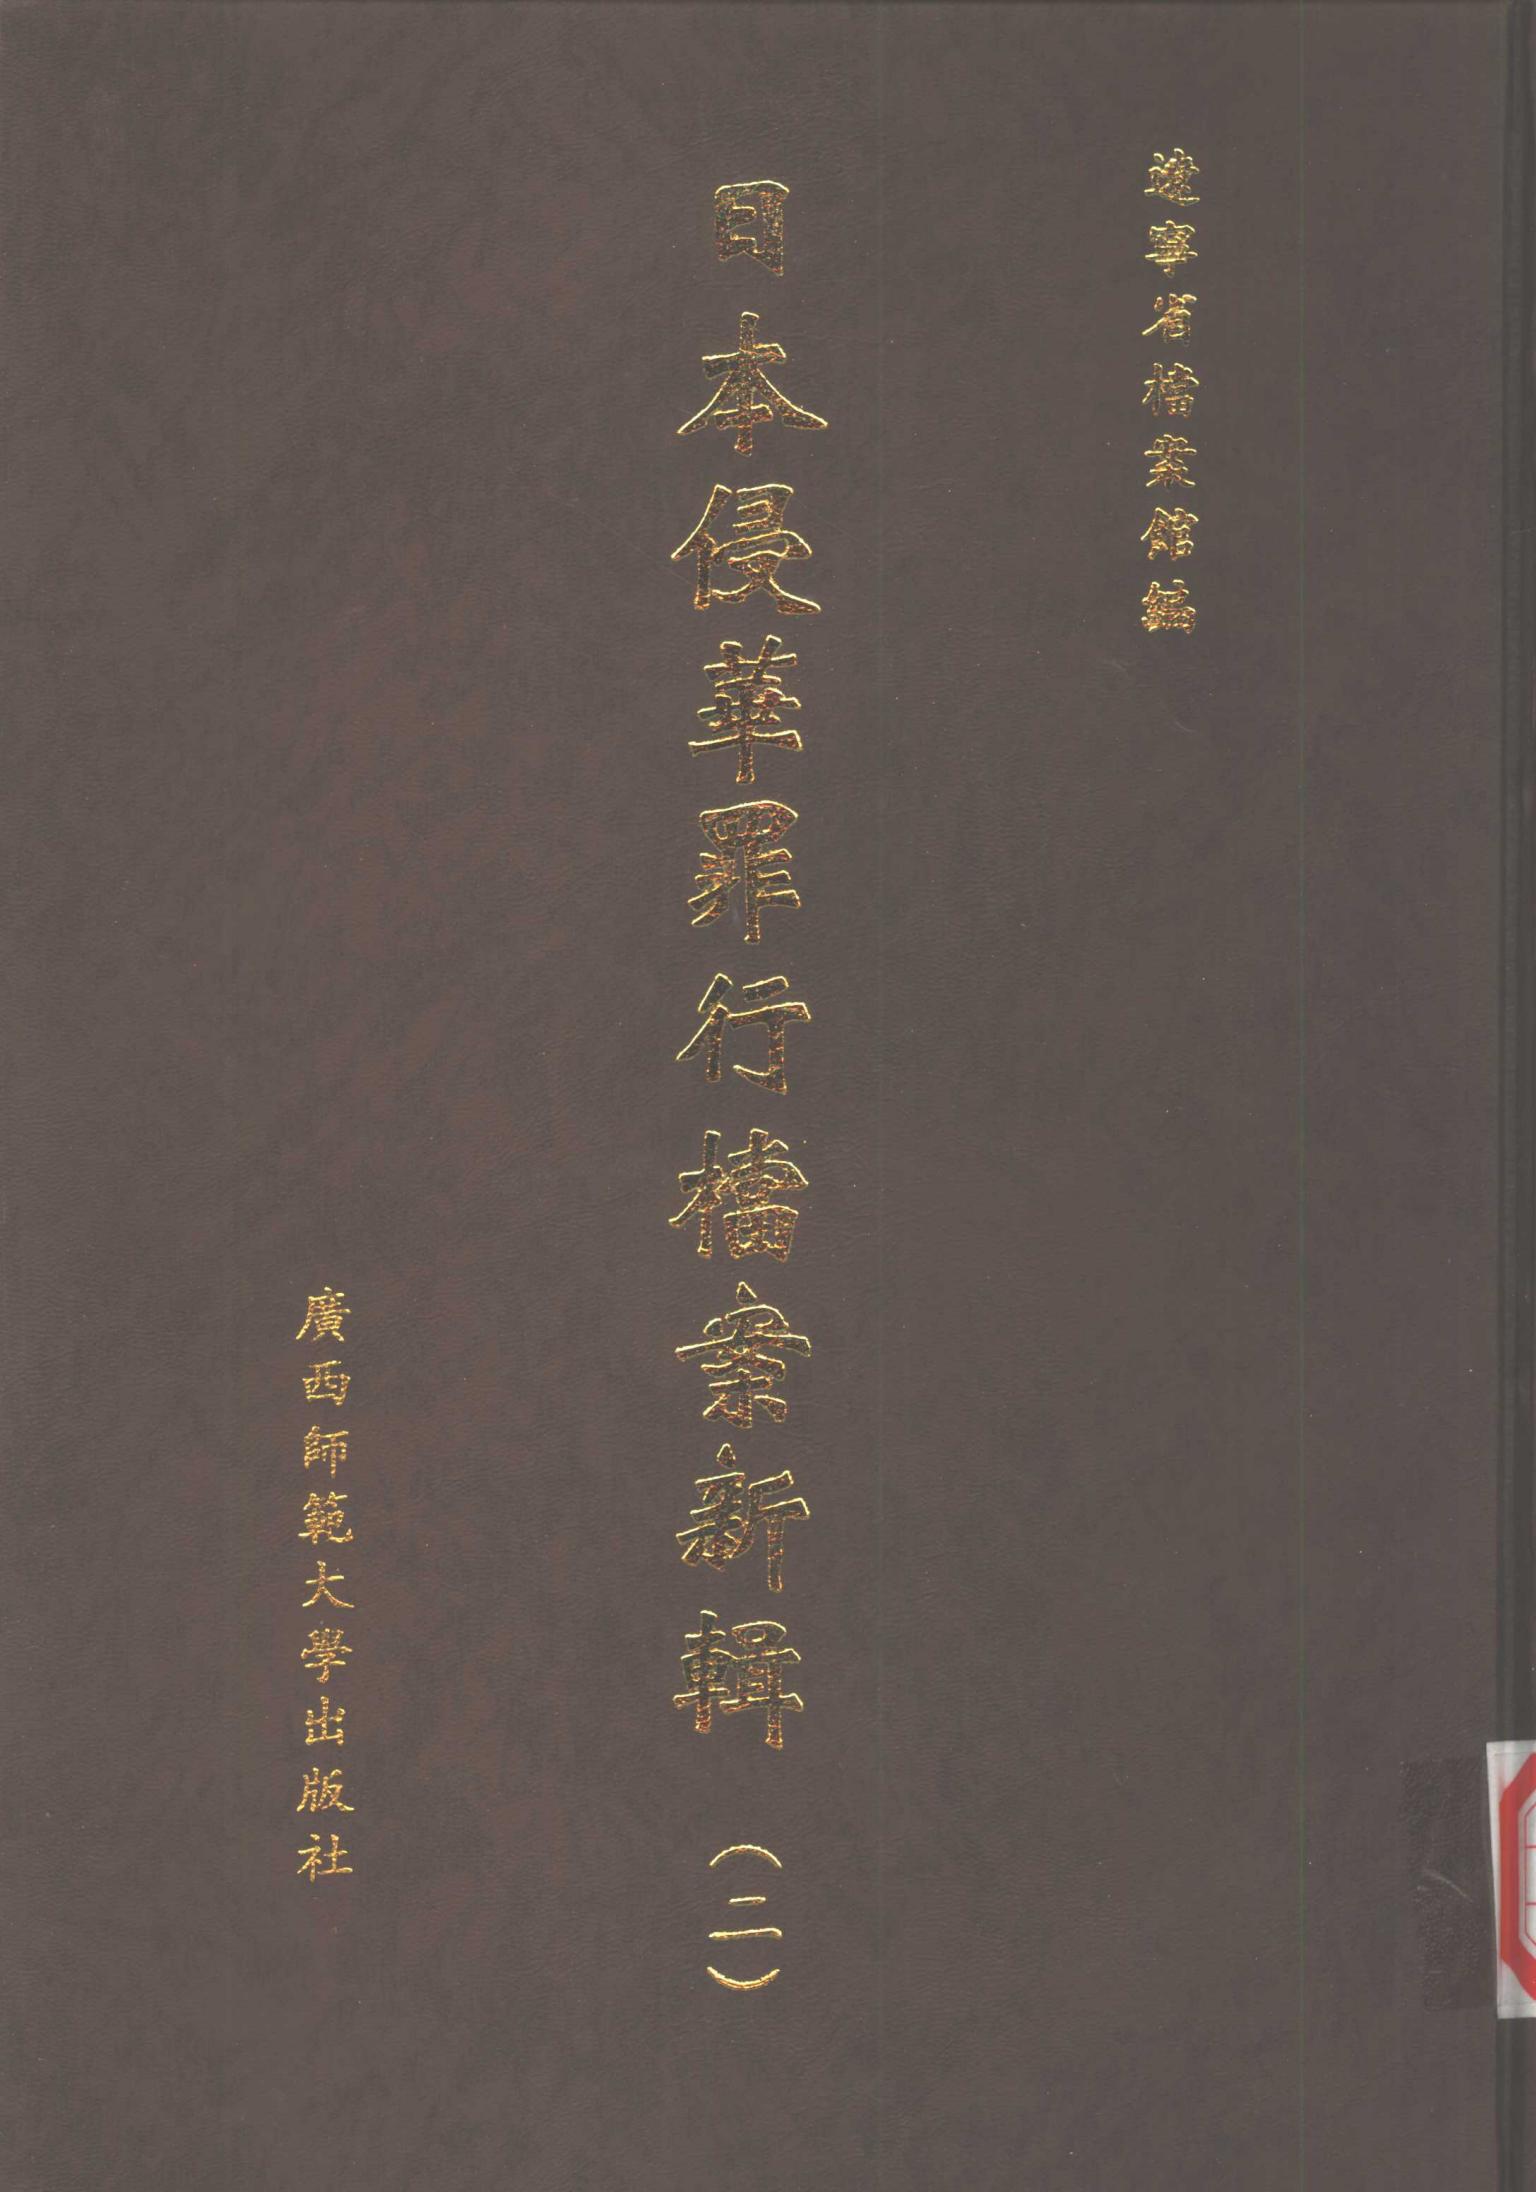 遼寧省檔案館編
日本侵華罪行檔案新輯（二）
廣西師範大學出版社